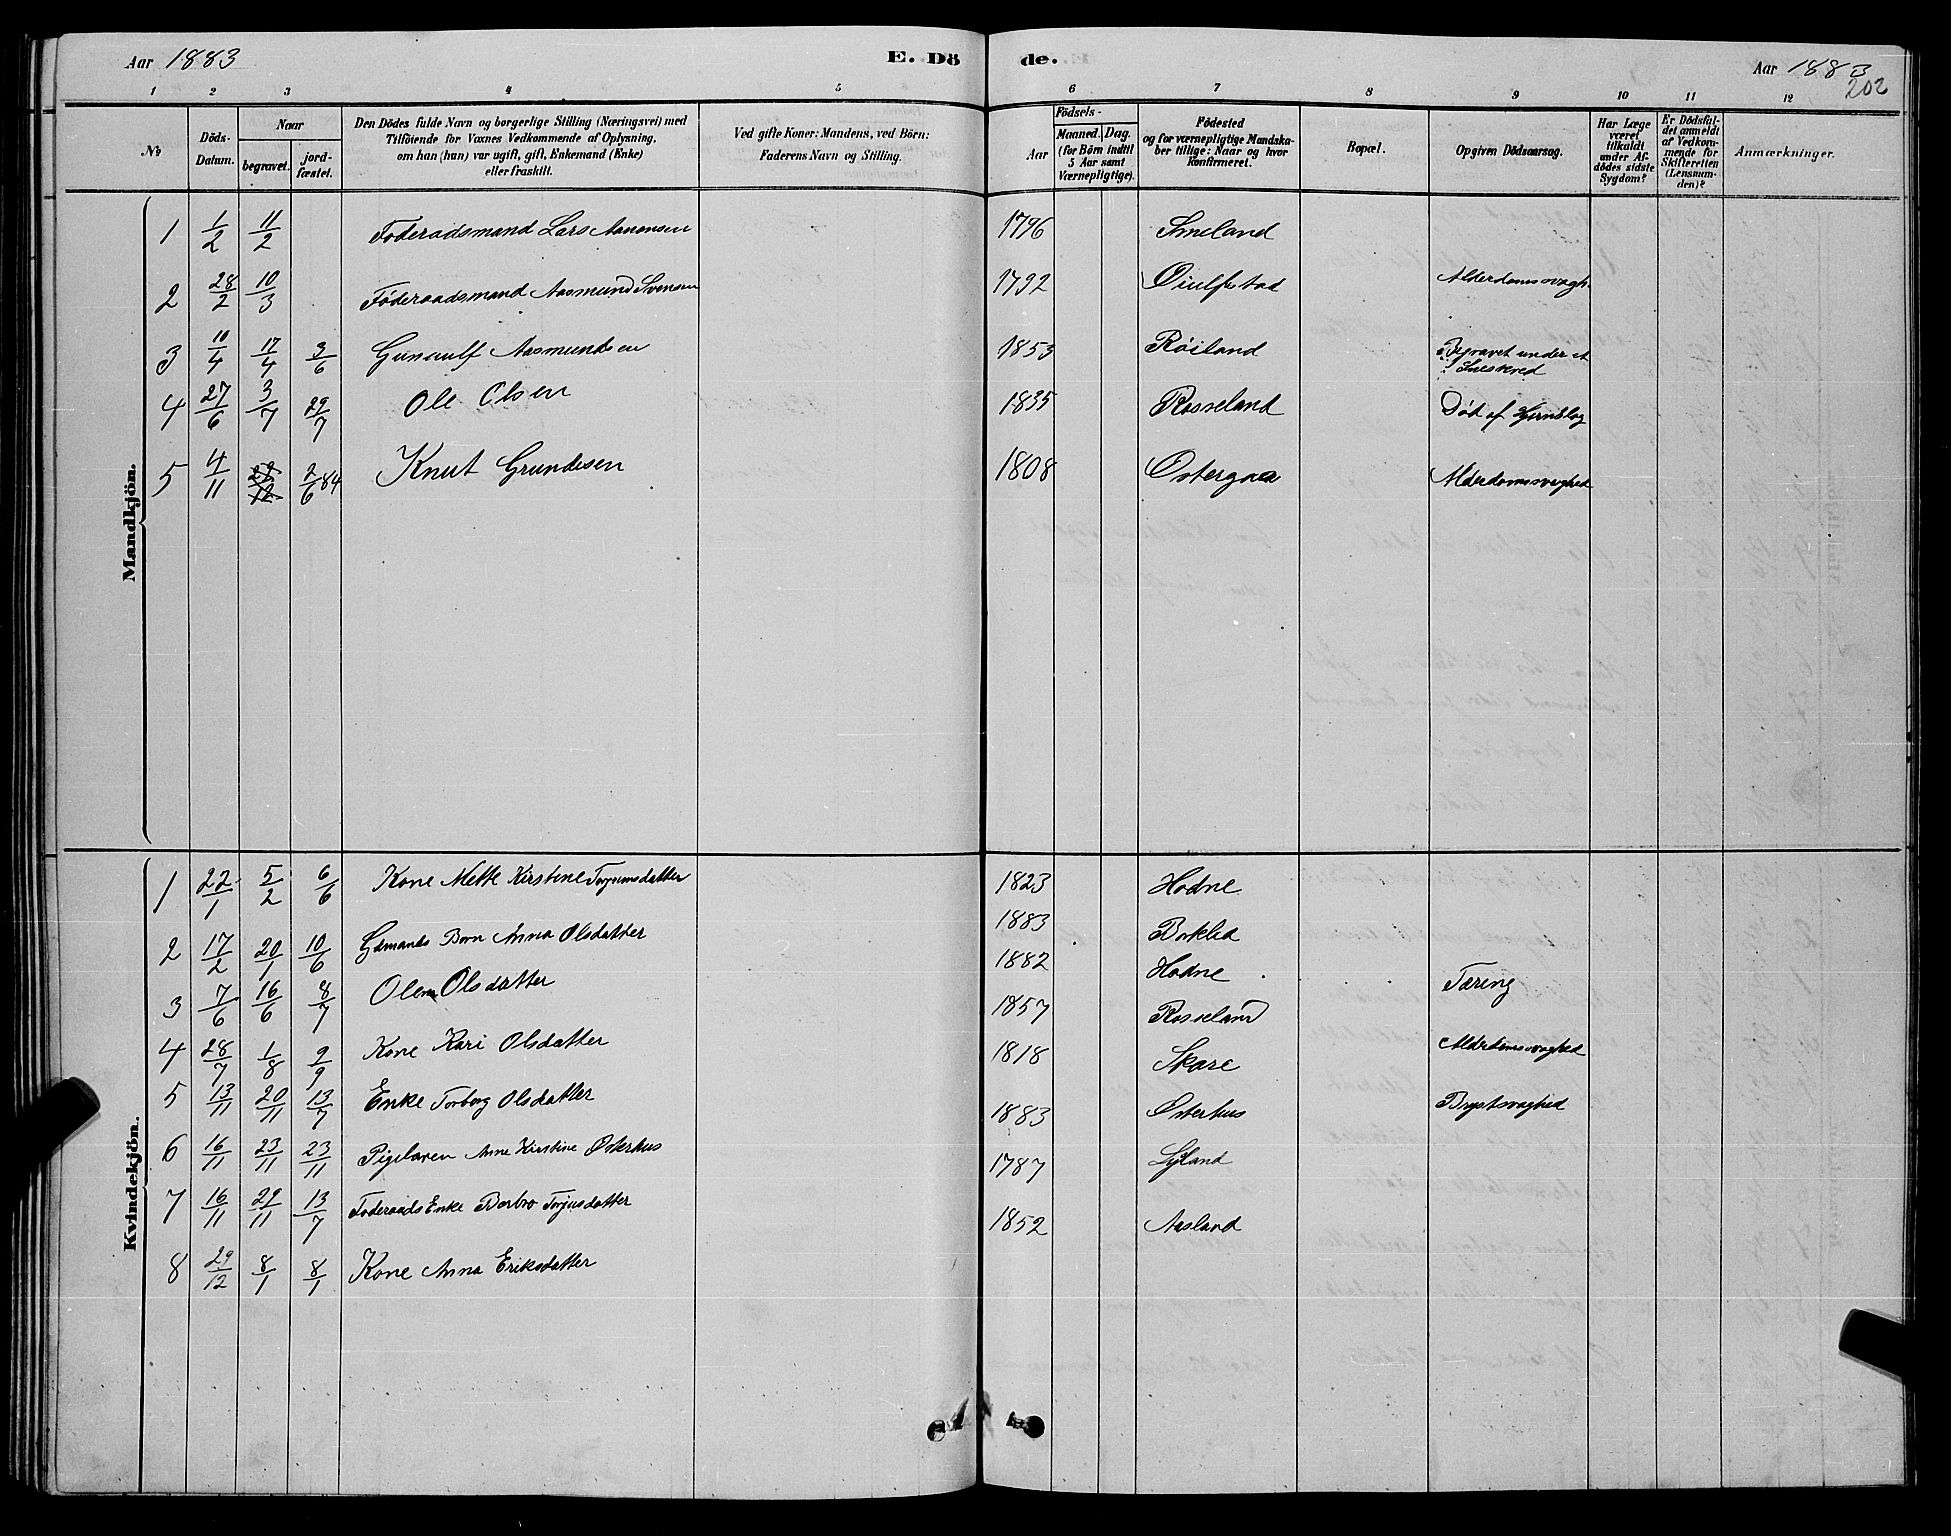 Aar 1883 E. Dö de. Aar 1883
202
1 2 3 4 5 6 7 8 9 10 11 12
№ Döds-Datum. Naar begravet. jord-fæstet. Den Dödes fulde Navn og borgerlige Stilling (Næringsvei) med Tilföiende for Voxnes Vedkommende af Oplysning, om han (hun) var ugift, gift, Enkemand (Enke) eller fraskilt. Ved gifte Koner: Mandens, ved Börn: Faderens Navn og Stilling. Födsels- Aar Maaned. Dag. (for Börn indtil 5 Aar samt Værnepligtige). Födested og for værnepligtige Mandska-ber tillige: Naar og hvor konfirmeret. Bopæl. Opgiven Dödsaarsag. Har Læge været tilkaldt under Af-dödes sidste Sygdom? Er Dödsfal-det anmeldt af Vedkom-mende for Skifteretten (Lensman-den)? Anmærkninger.
Mandkjön.
1 1/2 11/2 Foderaadsmand Lars Aanonsen 1796 Smeland
2 28/2 10/3 Föderaadsmand Aasmund Svensen 1792 Öiulfstad Alderdomssvagh.
3 10/4 17/4 3/6 Gunnulf Aasmundsen 1853 Röiland Begravet under et
Sneskred
4 27/6 3/7 29/7 Ole Olsen 1835 Rosseland Död af Hjernslag
5 4/11 2/6 84 Knut Grundesen 1808 Östergaa Alderdomssvaghed
Kvindekjön.
1 22/1 5/2 6/6 Kone Mette Kirstine Torjumsdatter 1823 Hodne
2 17/2 20/1 10/6 Gdmands Barn Anna Olsdatter 1883 Borklid
3 7/6 16/6 8/7 Olene Olsdatter 1882 Hodne Tæring
4 28/7 1/8 9/9 Kone Kari Olsdatter 1857 Rosseland
5 13/11 20/11 13/7 Enke Torborg Olsdatter 1818 Skare Alderdomssvaghed
6 16/11 23/11 23/11 Pigebarn Anne Kirstine Österhus 1883 Österhus Brystsvaghed
7 16/11 29/11 13/7 Foderaads Enke Barbro Torjusdatter 1787 Lyland
8 29/12 8/1 8/1 Kone Anna Eriksdatter 1852 Aasland